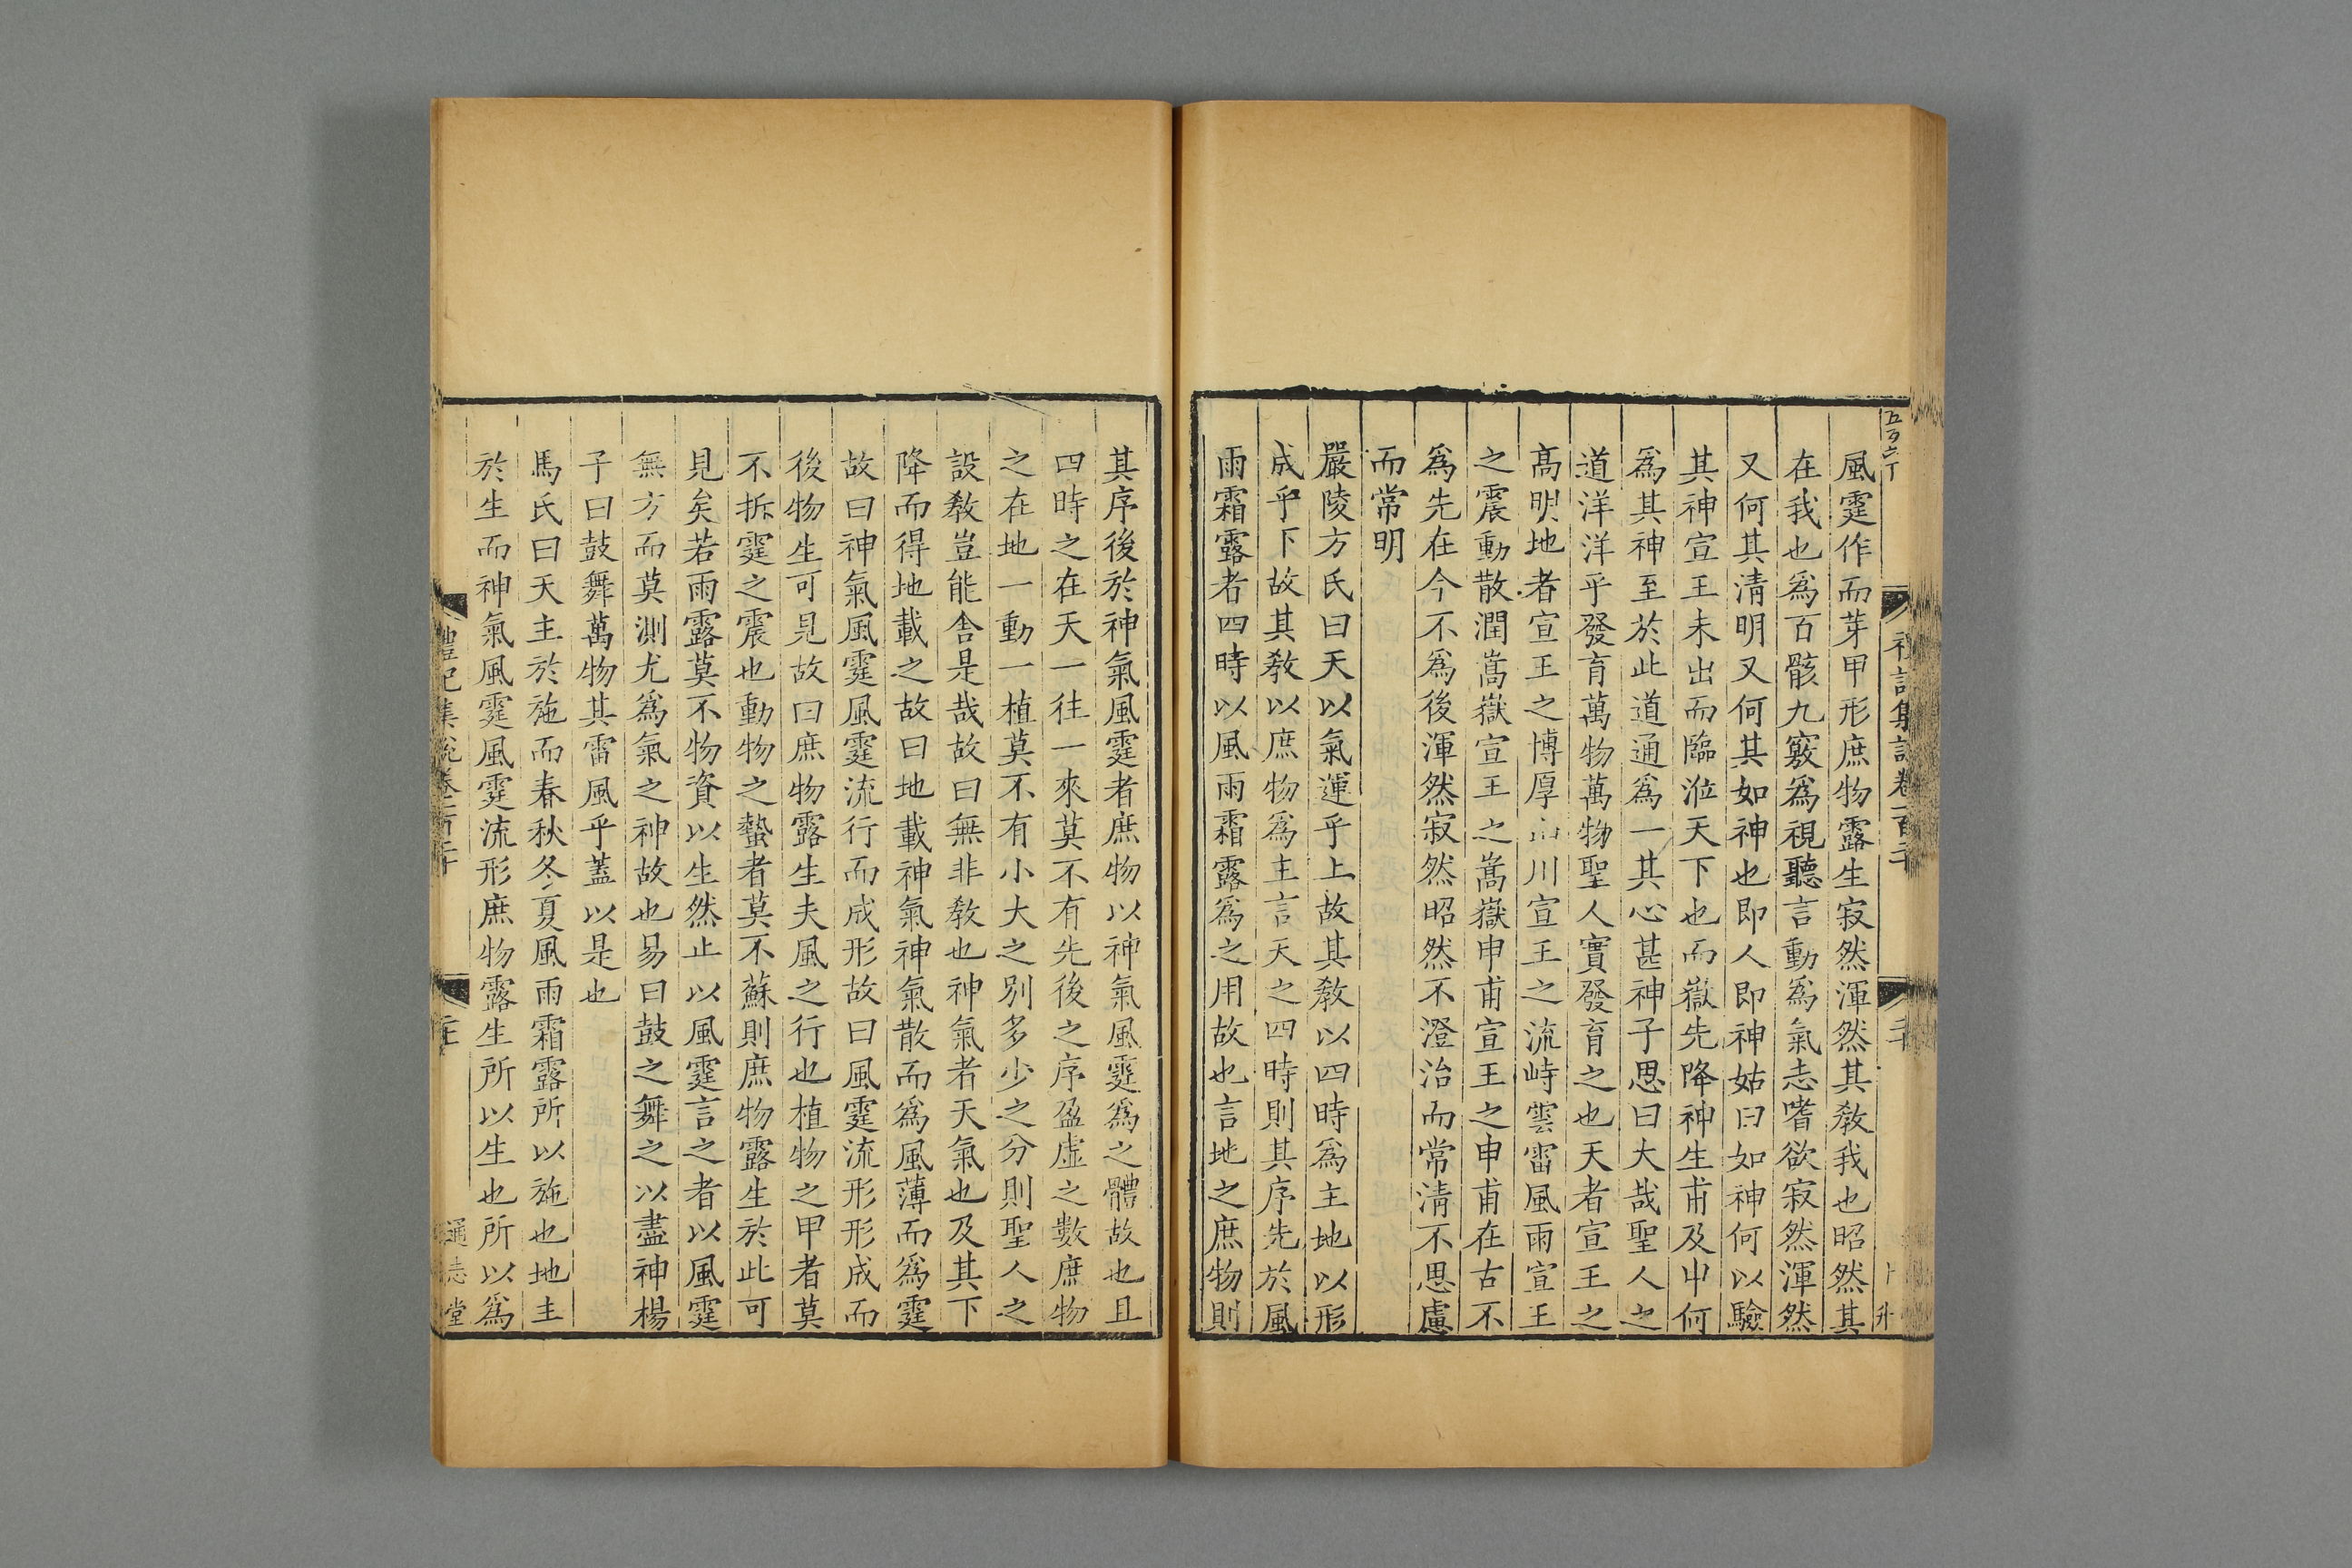 風霆作而芽甲形庶物露生寂然渾然其敎我也昭然其
在我也爲百骸九竅爲視聽言動爲氣志嗜欲寂然渾然
又何其清明又何其如神也即人即神姑曰如神何以驗
其神宣王未出而臨涖天下也而嶽先降神生甫及申何
爲其神至於此道通爲一其心甚神子思曰大哉聖人之
道洋洋乎發育萬物萬物聖人實發育之也天者宣王之
高明地者宣王之博厚山川宣王之流峙雲雷風雨宣王
之震動散潤嵩嶽宣王之嵩嶽申甫宣王之申甫在古不
爲先在今不爲後渾然寂然昭然不澄治而常淸不思慮
而常明
嚴陵方氏曰天以氣運乎上故其敎以四時爲主地以形
成乎下故其敎以庶物爲主言天之四時則其序先於風
雨霜露者四時以風雨霜露爲之用故也言地之庶物則
其序後於神氣風霆者庶物以神氣風霆爲之體故也且
四時之在天一往一來莫不有先後之序盈虛之數庶物
之在地一動一植莫不有小大之別多少之分則聖人之
設敎豈能舍是哉故曰無非敎也神氣者天氣也及其下
降而得地載之故曰地載神氣神氣散而爲風薄而爲霆
故曰神氣風霆風霆流行而成形故曰風霆流形形成而
後物生可見故曰庶物露生夫風之行也植物之甲者莫
不拆霆之震也動物之蟄者莫不蘇則庶物露生於此可
見矣若雨露莫不物資以生然止以風霆言之者以風霆
無方而莫測尤爲氣之神故也易曰鼓之舞之以盡神楊
子曰鼓舞萬物其雷風乎蓋以是也
馬氏曰天主於施而春秋冬夏風雨霜露所以施也地主
於生而神氣風霆風霆流形庶物露生所以生也所以爲
通志堂